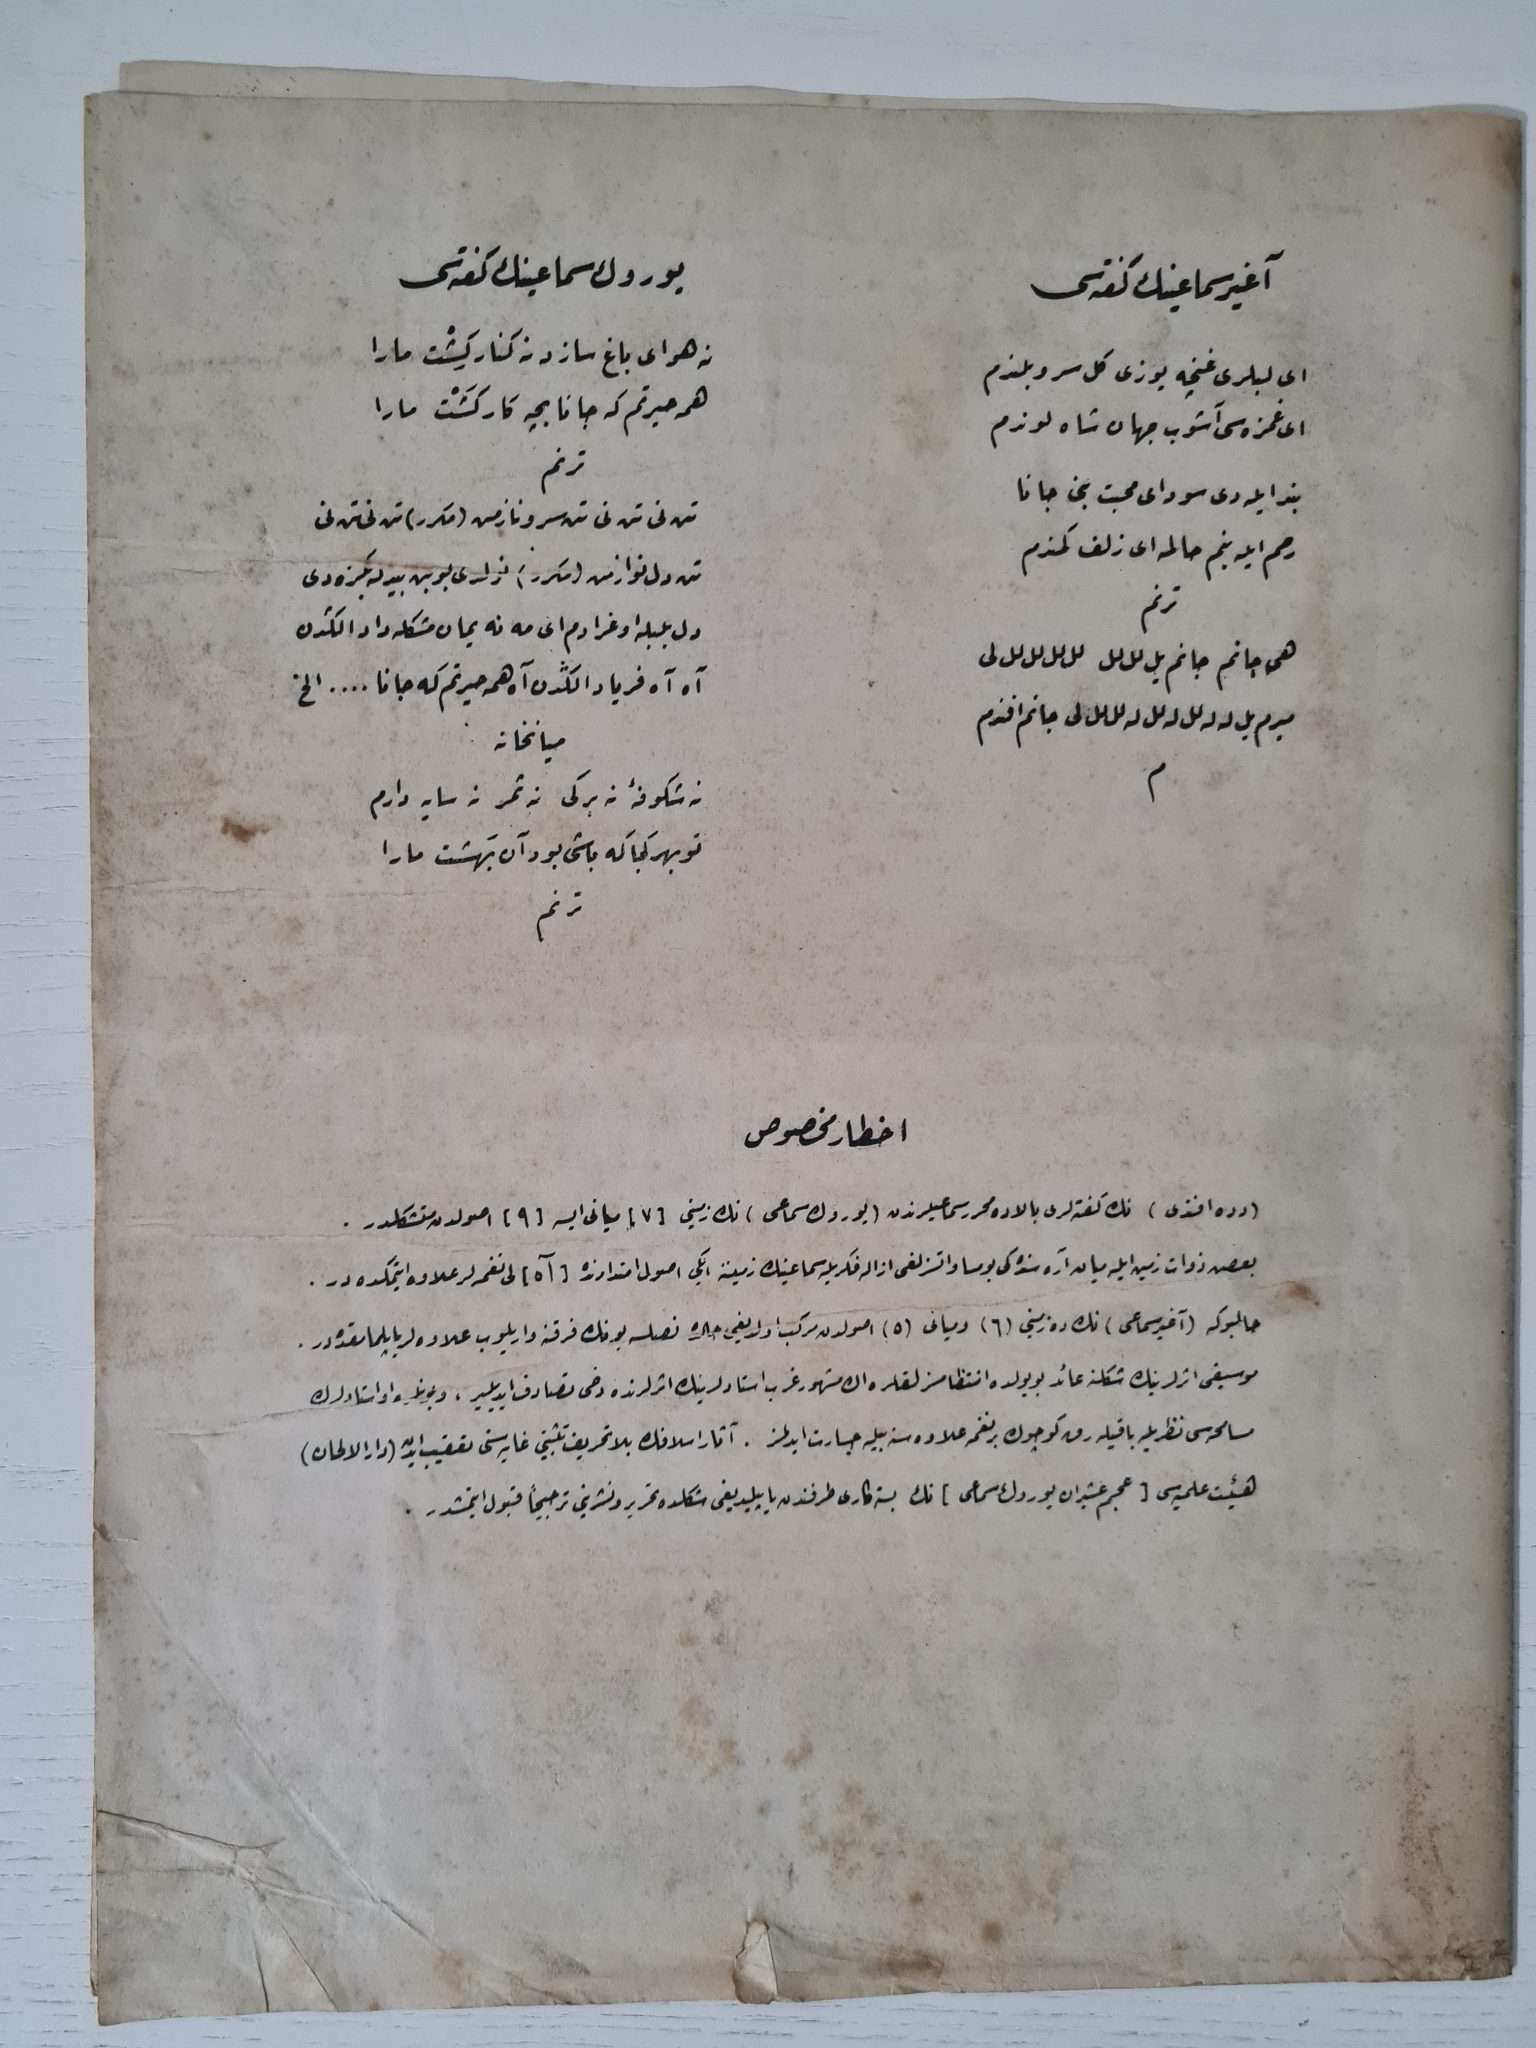 آغیر سماعینك كفته‌سی
ای لبلری غنچه یوزی كل سرو بلندم
ای غمزه سی آشوب جهان شاه لوندم
بند ایله دی سودای محبت بنی جانا
رحم ایله بنم حالمه ای زلف كمندم
ترنم
هی جانم جانم یل لل لل لل لل لل لل لی
میرم یل له له لل له لل له لل لل لی جانم افندم
م
یوروك سماعینك كفته‌سی
نه هوای باغ سازد نه كنار كِشْت مارا
همه حیرتم كه جانا بچه كار كَشْت مارا
ترنم
تن نی تن نی تن سرو نازمن (مكرر) تن نی تن نی
تن دل نوازمن (مكرر)
دل بلبله اوغرادم ای مه نه یمان مشكله داد الكدن
آه آه فریاد الكدن آه همه حیرتم كه جانا .... الخ
میانخانه
نه شكوفهٔ نه بركی نه ثمر نه سایه دارم
تو بهر كجا كه باشی بود آن بهشت مارا
ترنم
اخطار مخصوص
(دده افندی) نك كفته‌لری بالاده محرر سماعیلرندن (یوروك سماعی) نك زمینی [٧] میانی ایسه [٩] اصولدن متشكلدر .
بعض ذوات زمین ایله میان آره سنده كی بو مساواتسزلغی ازاله فكریله سماعینك زمیننه ایكی اصول امتدادنده [آه] لی نغمه‌لر علاوه ایتمكده در .
حالبوكه (آغیر سماعی) نك ده زمینی (٦) ومیانی (٥) اصولدن مركب اولدیغی حالده نصلسه بونك فرقنه واریلوب علاوه لر یاپیلمامقده در .
موسیقی اثرلرینك شكلنه عائد بو یولده انتظامسزلقلره اك مشهور غرب استادلرینك اثرلرنده دخی تصادف ایدیلیر ، و او استادلرك
مسامحه سی نظریله باقیله رق كوچوك بر نغمه علاوه سنه بیله جسارت ایدلمز . آثار اسلافك بلا تحریف تثبیتی غایه سنی تعقیب ایدن (دار الالحان)
هیئت علمیه سی [عجم عشیران یوروك سماعی] نك بسته‌كاری طرفندن یاپیلدیغی شكلده تحریر ونشرینی ترجیحاً قبول ایتمشدر .